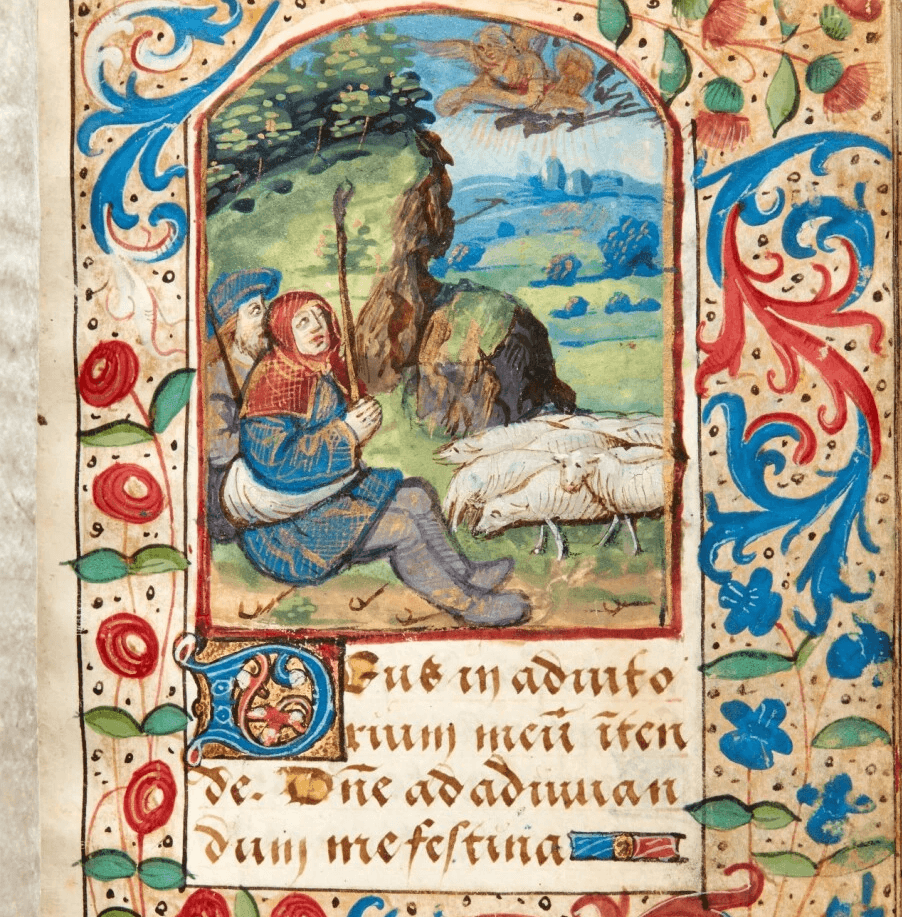 Deus in adiuto
rium meū īten
de. Dn̄e ad adiuuan
dum me festina